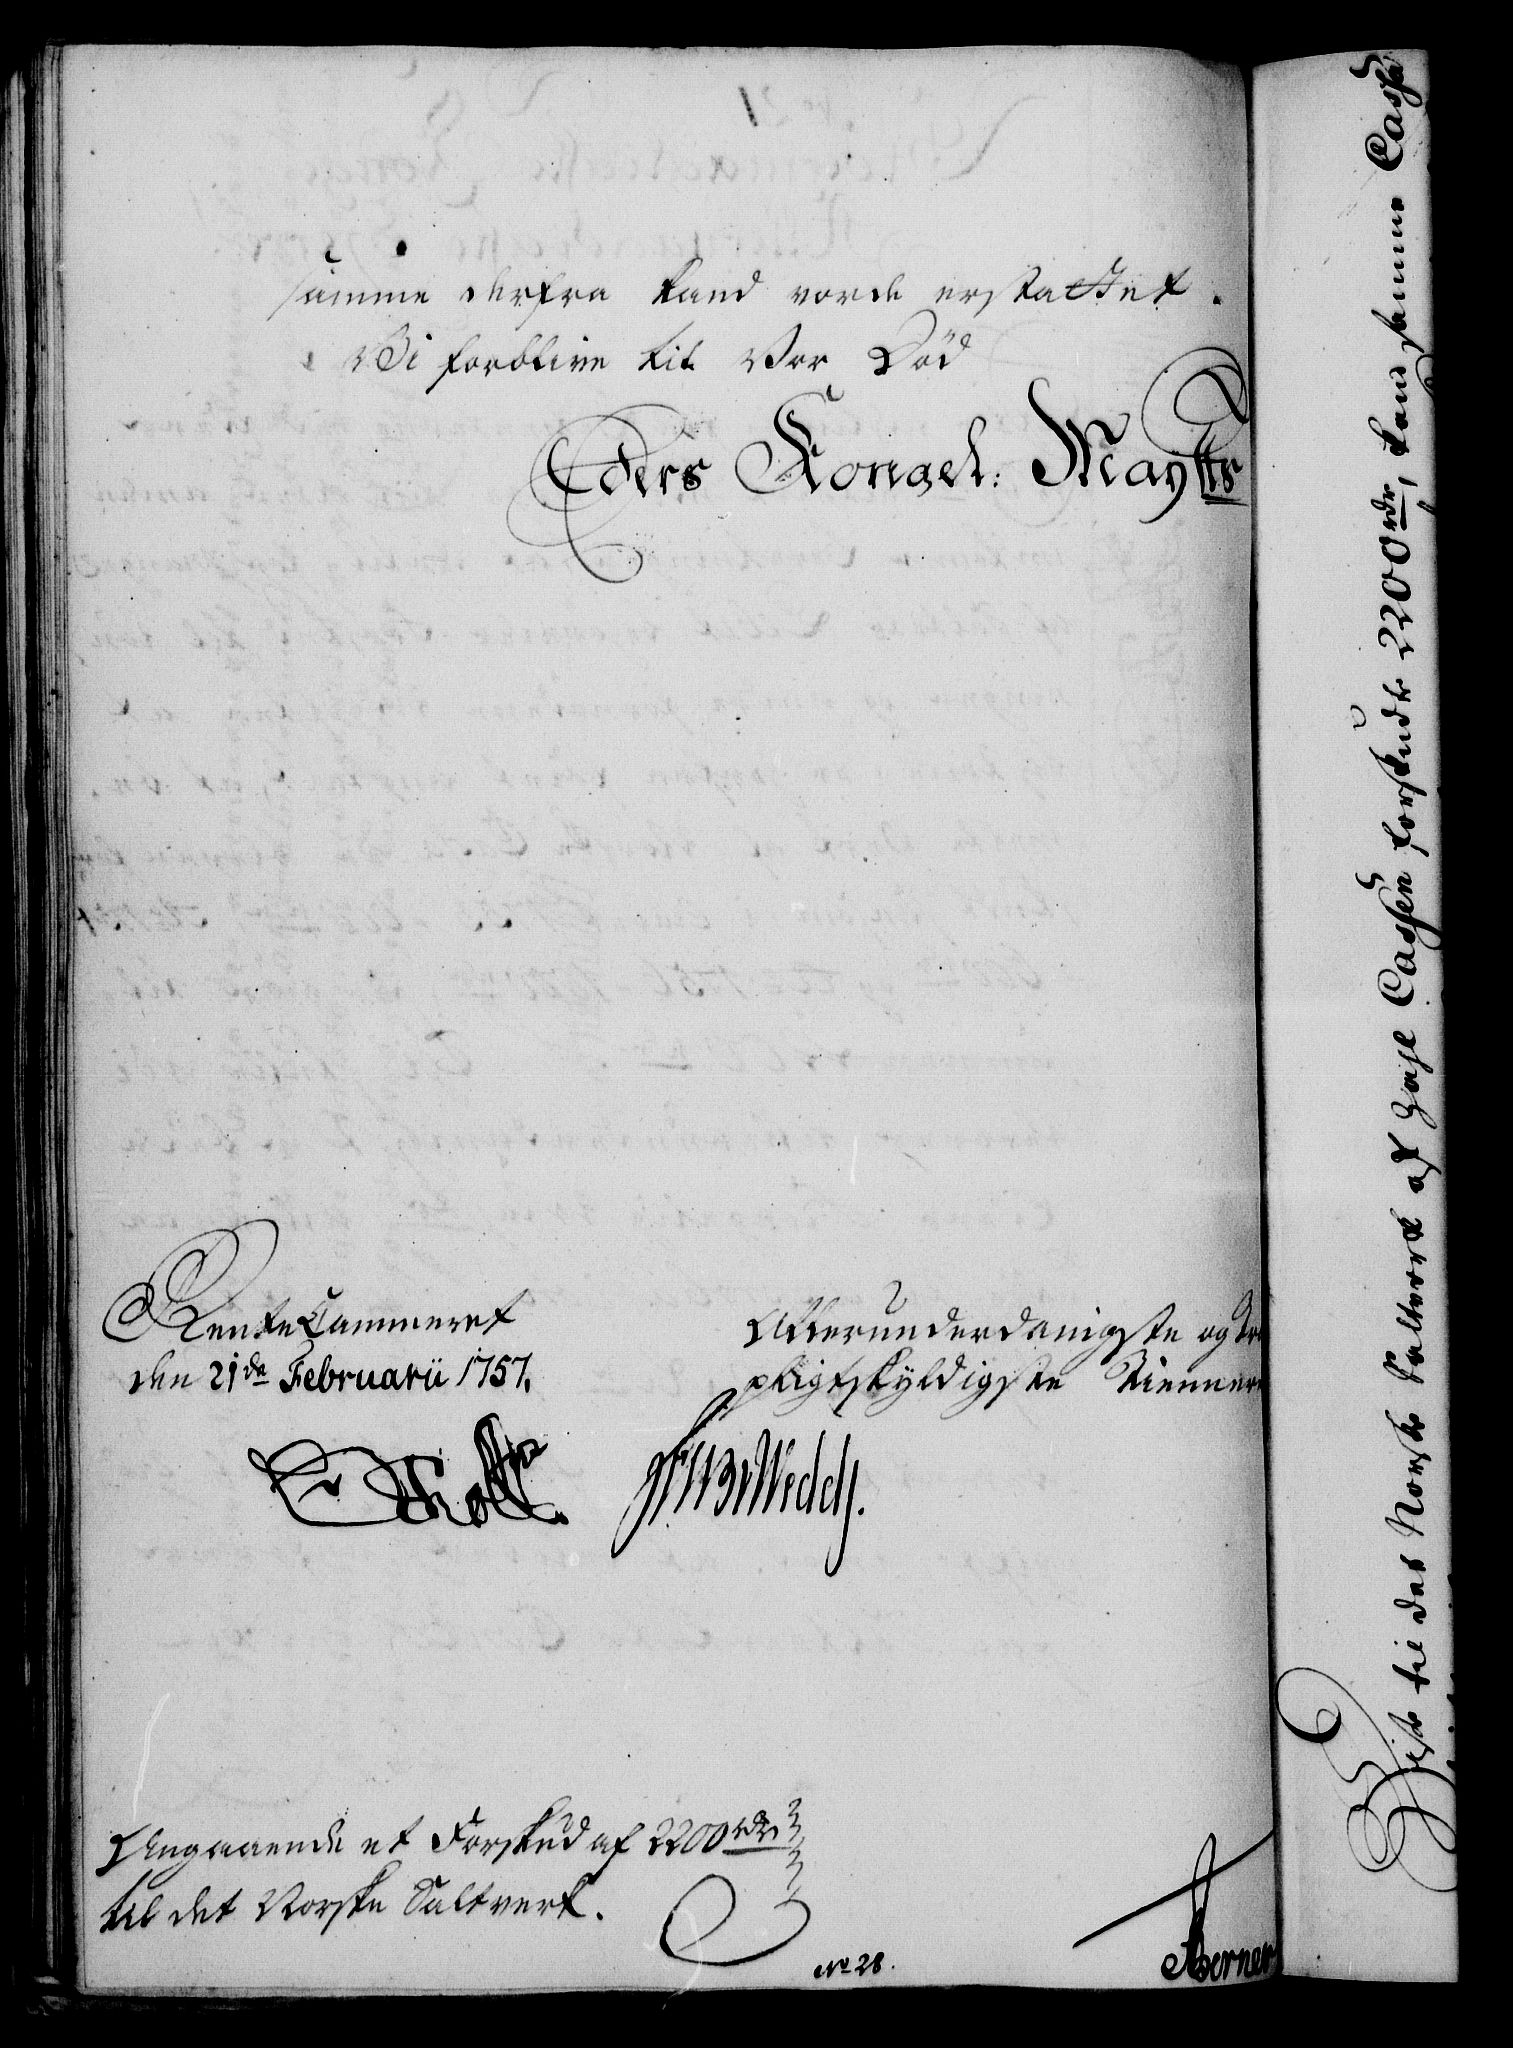 samme derfra kand vorde erstattet.
Vi forblive til Vor Død
Eders Kongel: Maytts
RenteCammeret
den 21de Februarii 1757.
Allerunderdanigste og
pligtskyldigste Tiennere
Angaaende et Forskud af 2200 rdr
til det Norske Saltverk.
No 28.
til det Norske Saltverk af Cassen forskudt 2200 rdr, kand samme Cassa